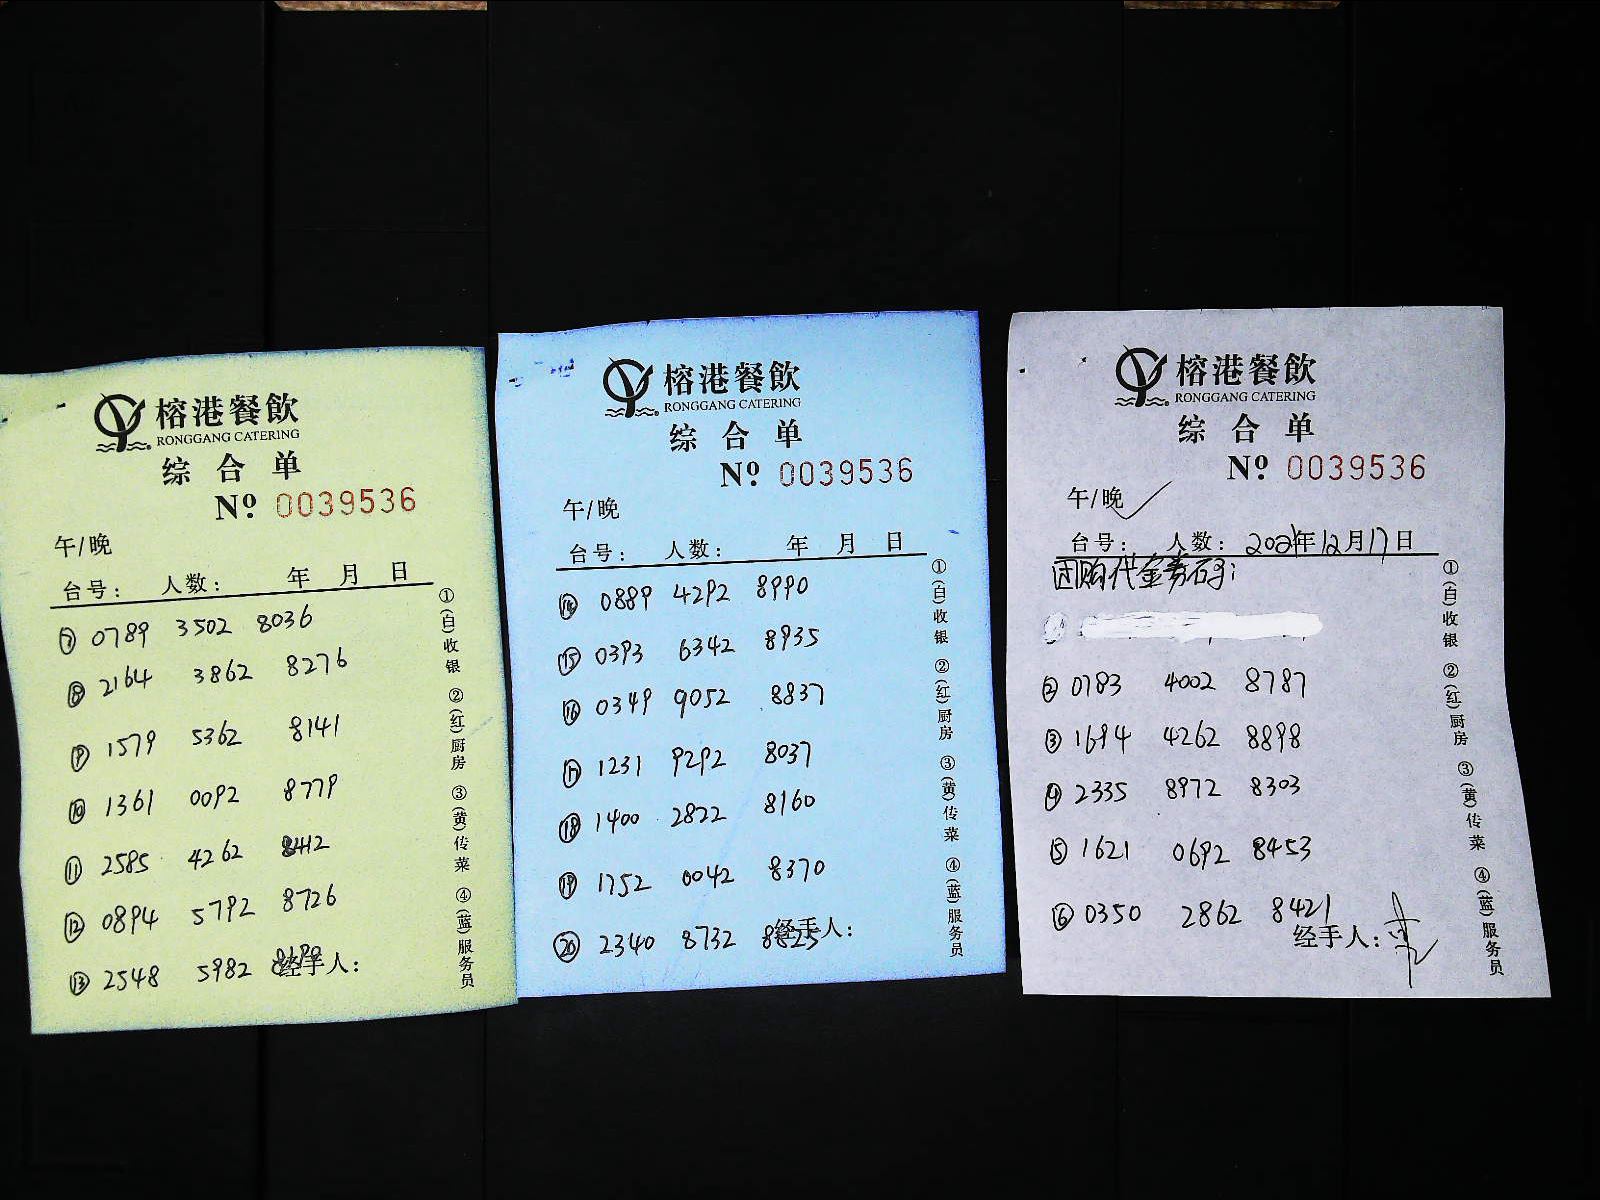 榕港餐飲
RONGGANG CATERING
综合单
Nº 0039536
午/晚
台号: 人数: 年 月 日
⑦ 0789 3502 8036
⑧ 2164 3862 8276
⑨ 1579 5362 8141
⑩ 1361 0092 8779
⑪ 2585 4262 8412
⑫ 0894 5792 8726
⑬ 2548 5982
经手人:
①(白)收银 ②(红)厨房 ③(黄)传菜 ④(蓝)服务员
榕港餐飲
RONGGANG CATERING
综合单
Nº 0039536
午/晚
台号: 人数: 年 月 日
⑭ 0889 4292 8990
⑮ 0393 6342 8935
⑯ 0349 9052 8837
⑰ 1231 9292 8037
⑱ 1400 2822 8160
⑲ 1752 0042 8370
⑳ 2340 8732 8825
经手人:
①(白)收银 ②(红)厨房 ③(黄)传菜 ④(蓝)服务员
榕港餐飲
RONGGANG CATERING
综合单
Nº 0039536
午/晚
台号: 人数: 2021年12月17日
团购代金券码:
② 0783 4002 8787
③ 1694 4262 8898
④ 2335 8972 8303
⑤ 1621 0692 8453
⑥ 0350 2862 8421
经手人:
①(白)收银 ②(红)厨房 ③(黄)传菜 ④(蓝)服务员